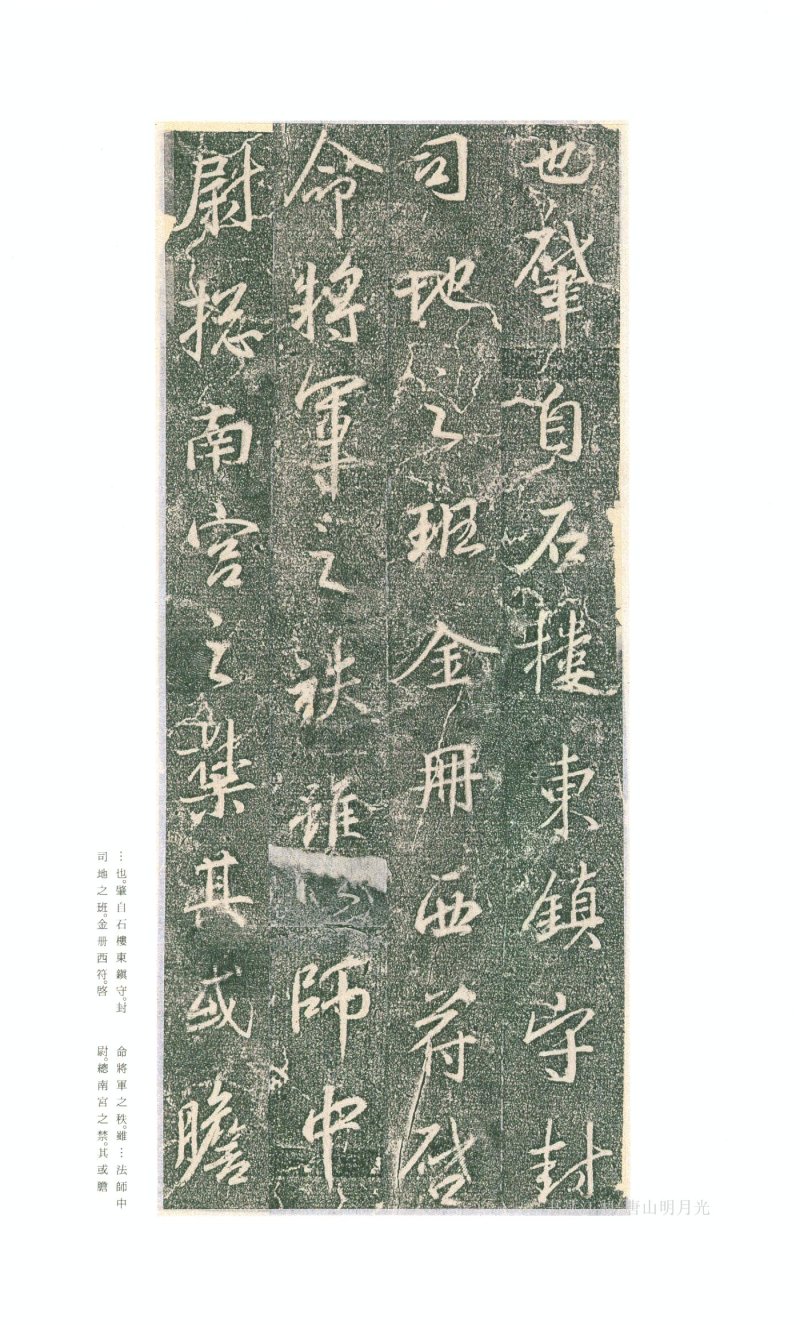 也肇自石樓東鎮守封
司地之班金冊西符啓
命將軍之秩雖師中
尉捴南宮之禁其或瞻
…也。肇自石樓東鎮守。封
司地之班。金册西符。啓
命將軍之秩。雖…法師中
尉。總南宮之禁。其或瞻
唐山明月光